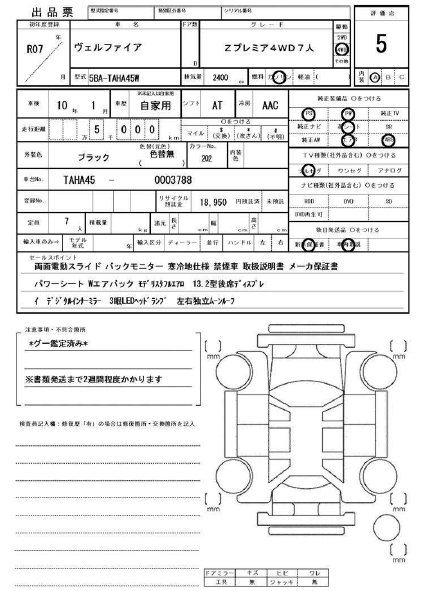 出品票 型式指定番号 類別区分番号 シリアル番号 評価点
初年度登録 車名 ドア数 グレード 駆動
R07 年 月 ヴェルファイア D Zプレミア4WD7人 2WD 4WD その他 5
型式 5BA-TAHA45W 排気量 2400 cc 燃料 ガソリン 軽油 ( ) 内装 A B C
車検 10 年 1 月 車歴 自家用 シフト AT 冷房 AAC
未記入は自家用
純正装備品 〇をつける
PS PW 純正TV
純正ナビ SR
純正AW ABS
走行距離 5 0 0 0 km
万 千
〇をつける
マイル $ (交換) * (改ざん) # (不明)
外装色 ブラック 色替(元色) 色替無 ( ) カラーNo. 202 内装色
TV種類(社外品含む)〇をつける
フルセグ ワンセグ アナログ
車台No. TAHA45 - 0003788
ナビ種類(社外品含む)〇をつける
HDD DVD SD
DVD再生可
登録No. リサイクル預託金 18,950 円預託済 未預託
定員 7 人 積載量 kg 諸元 長さ 幅 高さ cm
後日発送品 〇をつける
新車保証書 取扱説明書
輸入車のみ⇒ モデル年式 年 輸入区分 ディーラー 並行 ハンドル 左 右
セールスポイント
両面電動スライド バックモニター 寒冷地仕様 禁煙車 取扱説明書 メーカ保証書
パワーシート Wエアバック モデリスタフルエアロ 13.2型後席ディスプレ
イ デジタルインナーミラー 3眼LEDヘッドランプ 左右独立ムーンルーフ
注意事項・不具合箇所
*グー鑑定済み*
※書類発送まで2週間程度かかります
検査員記入欄:修復歴「有」の場合は修復箇所・交換箇所を記入
mm mm
mm mm
ドアミラー キズ ヒビ ワレ
工具 無 ジャッキ 無